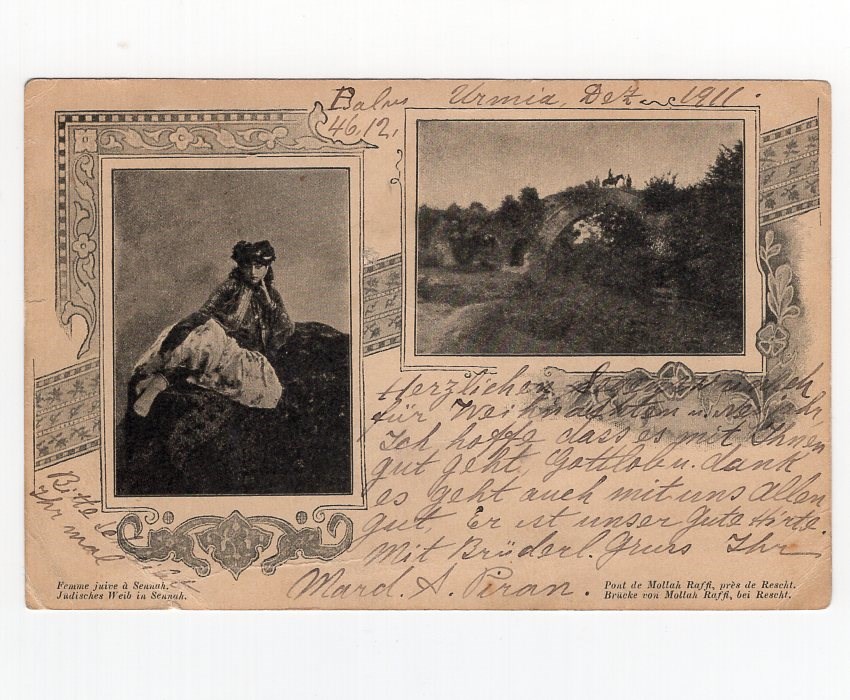 Urmia, Dez 1911.
46,12,
Herzlichen
für Weihnachten u. neujahr,
Ich hoffe dass es mit Ihnen
gut geht, Gottlob u. dank
es geht auch mit uns allen
gut, Er ist unser gute Hirte.
Mit Brüderl. Gruss Ihr
Mard. A. Piran.
Bitte
Ihr mal
Femme juive à Sennah.
Judisches Weib in Sennah.
Pont de Mollah Raffi, près de Rescht.
Brücke von Mollah Raffi, bei Rescht.